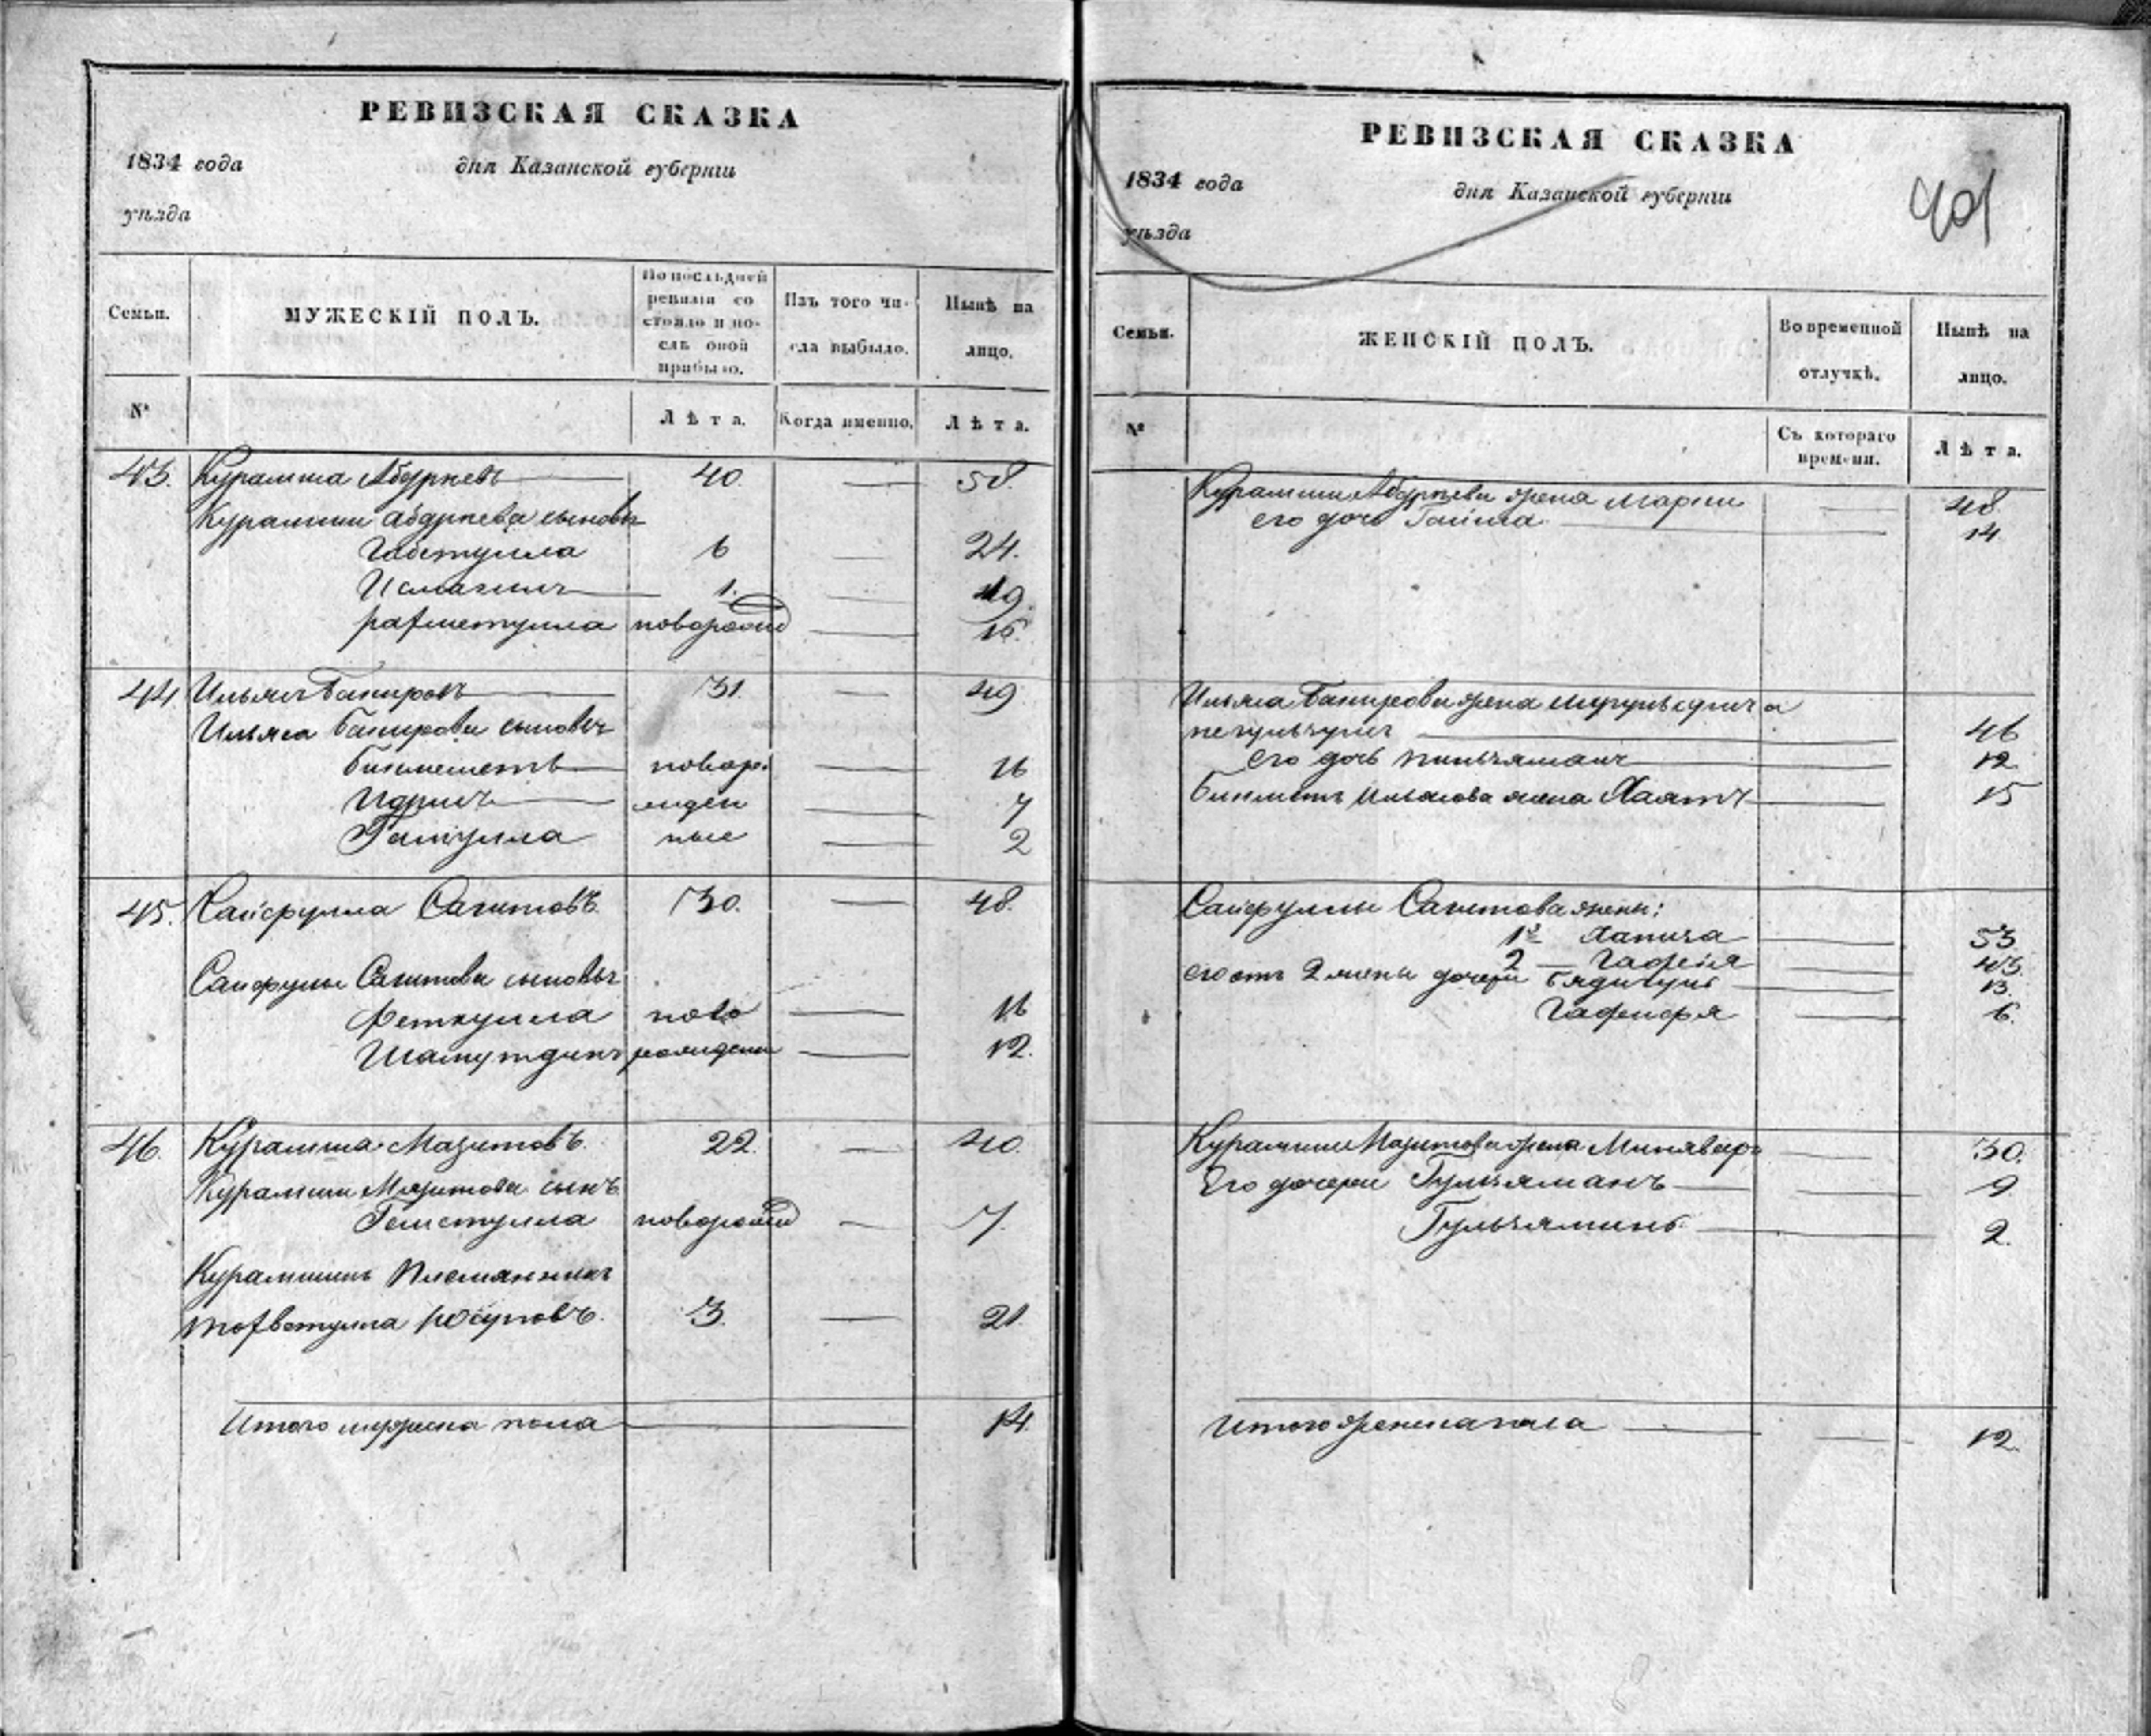 РЕВИЗСКАЯ СКАЗКА
1834 года дня Казанской губерніи
уѣзда
Семьи.
МУЖЕСКІЙ ПОЛЪ.
По послѣдней ревизіи состояло и послѣ оной прибыло.
Изъ того числа выбыло.
Нынѣ на лицо.
№
Лѣта.
Когда именно.
Лѣта.
43. Курамша Абдряевъ 40. — 58.
Курамши Абдряева сыновья
6 — 24.
Исмагилъ 1. — 19.
рахметулла новорожд — 16.
44 Ильясъ Бакировъ 31. — 49
Ильяса Бакирова сыновья
Бикмеметь новоро — 16
Идрисъ жден — 7
ные — 2
45. Сайфулла Сагитовъ 30. — 48.
Сайфулы Сагитова сыновья
Феткулла ново — 16
Шамутдинъ рожденн — 12.
46. Курамша Мазитовъ. 22. — 40.
Курамши Мазитова сынъ
новорожд — 7.
Курамшинъ племянникъ
Тохветулла Юсуповъ. 3. — 21.
Итого мужеска пола 14.
РЕВИЗСКАЯ СКАЗКА
1834 года дня Казанской губерніи
уѣзда
Семьи.
ЖЕНСКІЙ ПОЛЪ.
Во временной отлучкѣ.
Нынѣ на лицо.
№
Съ котораго времени.
Лѣта.
Курамши Абдряева жена — 48
его дочь — 14
Ильяса Бакирова жена
— 46
его дочь — 12
Бикметь Ильясова жена Хаятъ — 15
Сайфуллы Сагитова жены:
1я — 53
2 — — 43
его отъ 2 жены дочери — 13
— 6.
Курамши Мазитова жена Минявара — 30.
Его дочери Гульзяманъ — 9
— 2.
Итого женска пола — 12.